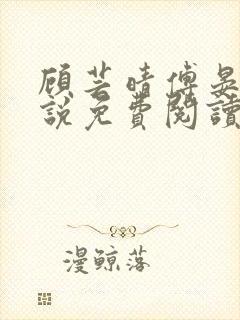 顾芸晴傅晏
說免費閱讀
漫鲸落